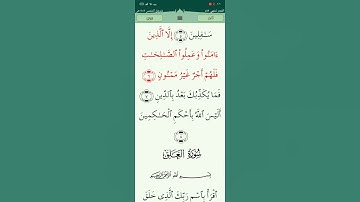 سَٰفِلِينَ ۝٥ إِلَّا ٱلَّذِينَ
ءَامَنُوا۟ وَعَمِلُوا۟ ٱلصَّٰلِحَٰتِ
فَلَهُمْ أَجْرٌ غَيْرُ مَمْنُونٍ ۝٦
فَمَا يُكَذِّبُكَ بَعْدُ بِٱلدِّينِ ۝٧
أَلَيْسَ ٱللَّهُ بِأَحْكَمِ ٱلْحَٰكِمِينَ
۝٨
سُورَةُ العَلَقِ
بِسْمِ ٱللَّهِ ٱلرَّحْمَٰنِ ٱلرَّحِيمِ
ٱقْرَأْ بِٱسْمِ رَبِّكَ ٱلَّذِى خَلَقَ